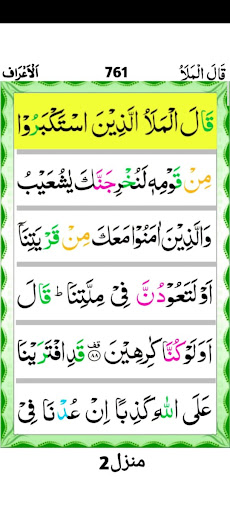 اَلْاَعْرَاف 761 قَالَ الْمَلَاُ
قَالَ الْمَلَاُ الَّذِيْنَ اسْتَكْبَرُوْا
مِنْ قَوْمِهٖ لَنُخْرِجَنَّكَ يٰشُعَيْبُ
وَالَّذِيْنَ اٰمَنُوْا مَعَكَ مِنْ قَرْيَتِنَاۤ
اَوْ لَتَعُوْدُنَّ فِيْ مِلَّتِنَا ؕ قَالَ
اَوَلَوْ كُنَّا كٰرِهِيْنَ ۟ۙ ۸۸ قَدِ افْتَرَيْنَا
عَلَى اللّٰهِ كَذِبًا اِنْ عُدْنَا فِيْ
منزل 2